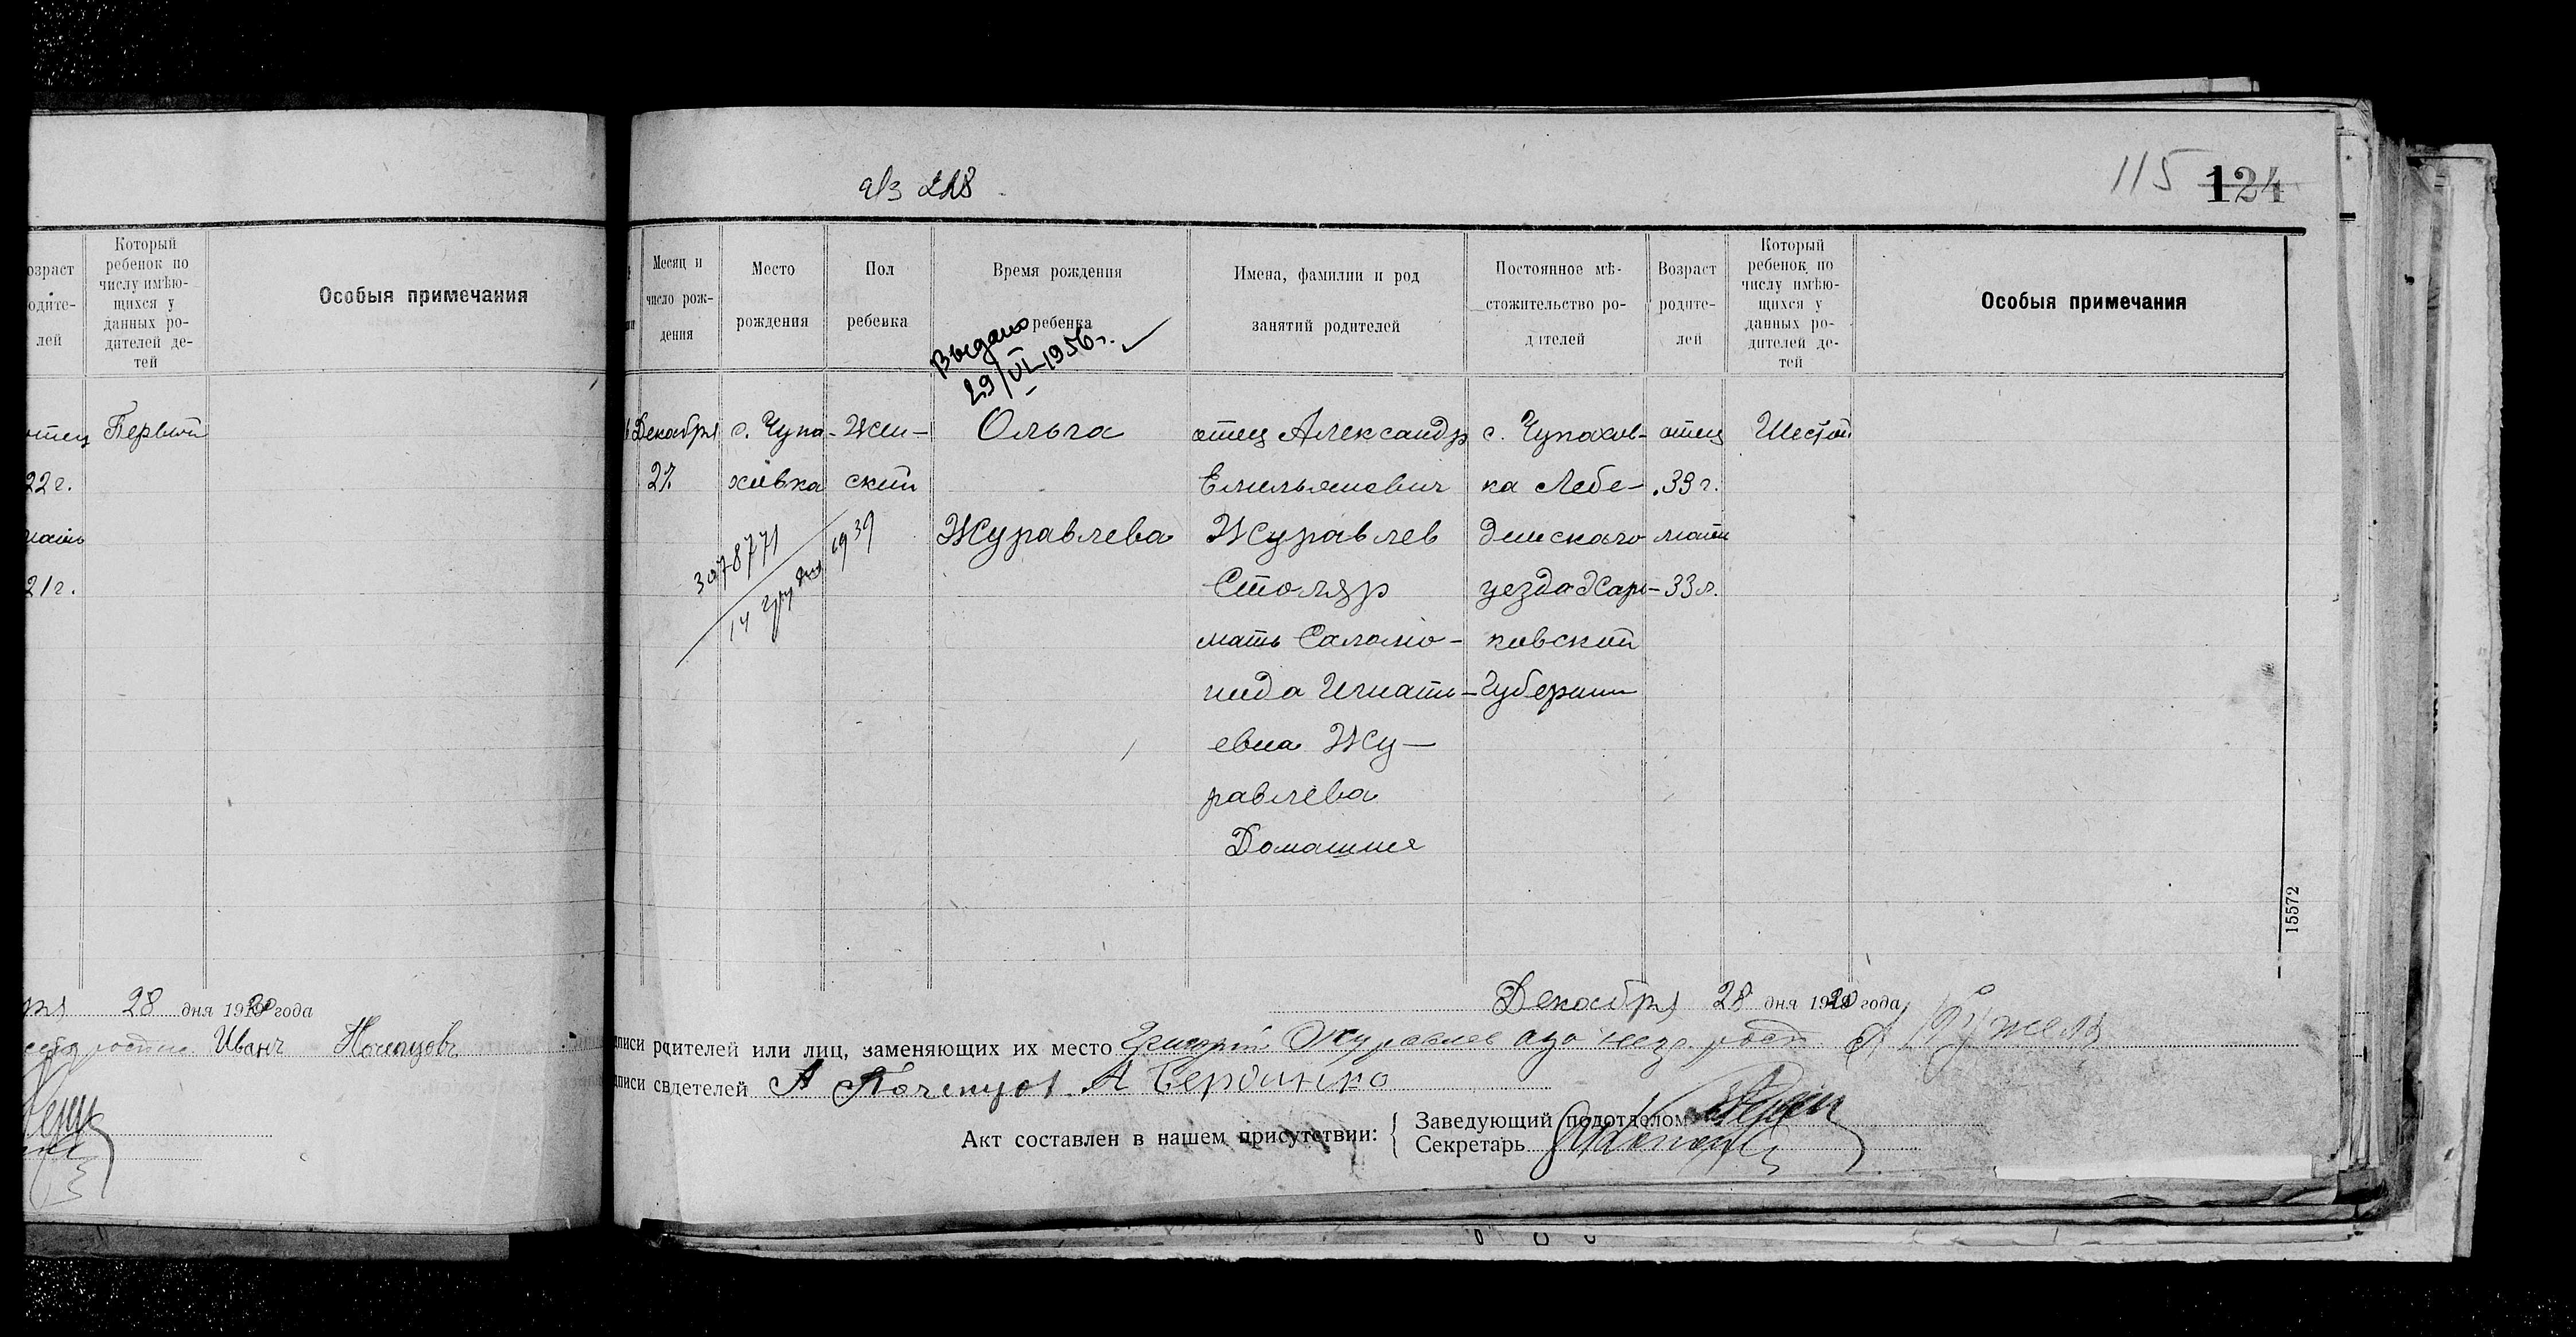 а/з 218
115 124
озраст
одите-
лей
Который
ребенок по
числу имѣю-
щихся у
данных ро-
дителей де-
тей
Особыя примечания
отец Первый
22 г.
мать
21 г.
28 дня 1920 года
Иванъ
Месяц и
число рож-
дения
Место
рождения
Пол
ребенка
Время рождения
ребенка
Имена, фамилии и род
занятий родителей
Постоянное мѣ-
стожительство ро-
дителей
Возраст
родите-
лей
Который
ребенок по
числу имѣю-
щихся у
данных ро-
дителей де-
тей
Особыя примечания
Выдано
29/VI-1956 г.
Декабря
27
с. Чупа-
ховка
Жен-
ский
3978771
14 грудня 1939
Ольга
Журавлева
отец Александр
Емельянович
Журавлев
Столяр
мать Саломо-
нида Игнать-
евна Жу-
равлева
Домашняя
с. Чупахов-
ка Лебе-
динского
уезда Харь-
ковской
Губернии
отец
33 г.
мать
33 г.
Шестой
15572
Декабря 28 дня 1920 года
дписи рдителей или лиц, заменяющих их место Григорий Журавлев
дписи свдетелей А
Акт составлен в нашем присутствии:
Заведующий подотделом
Секретарь